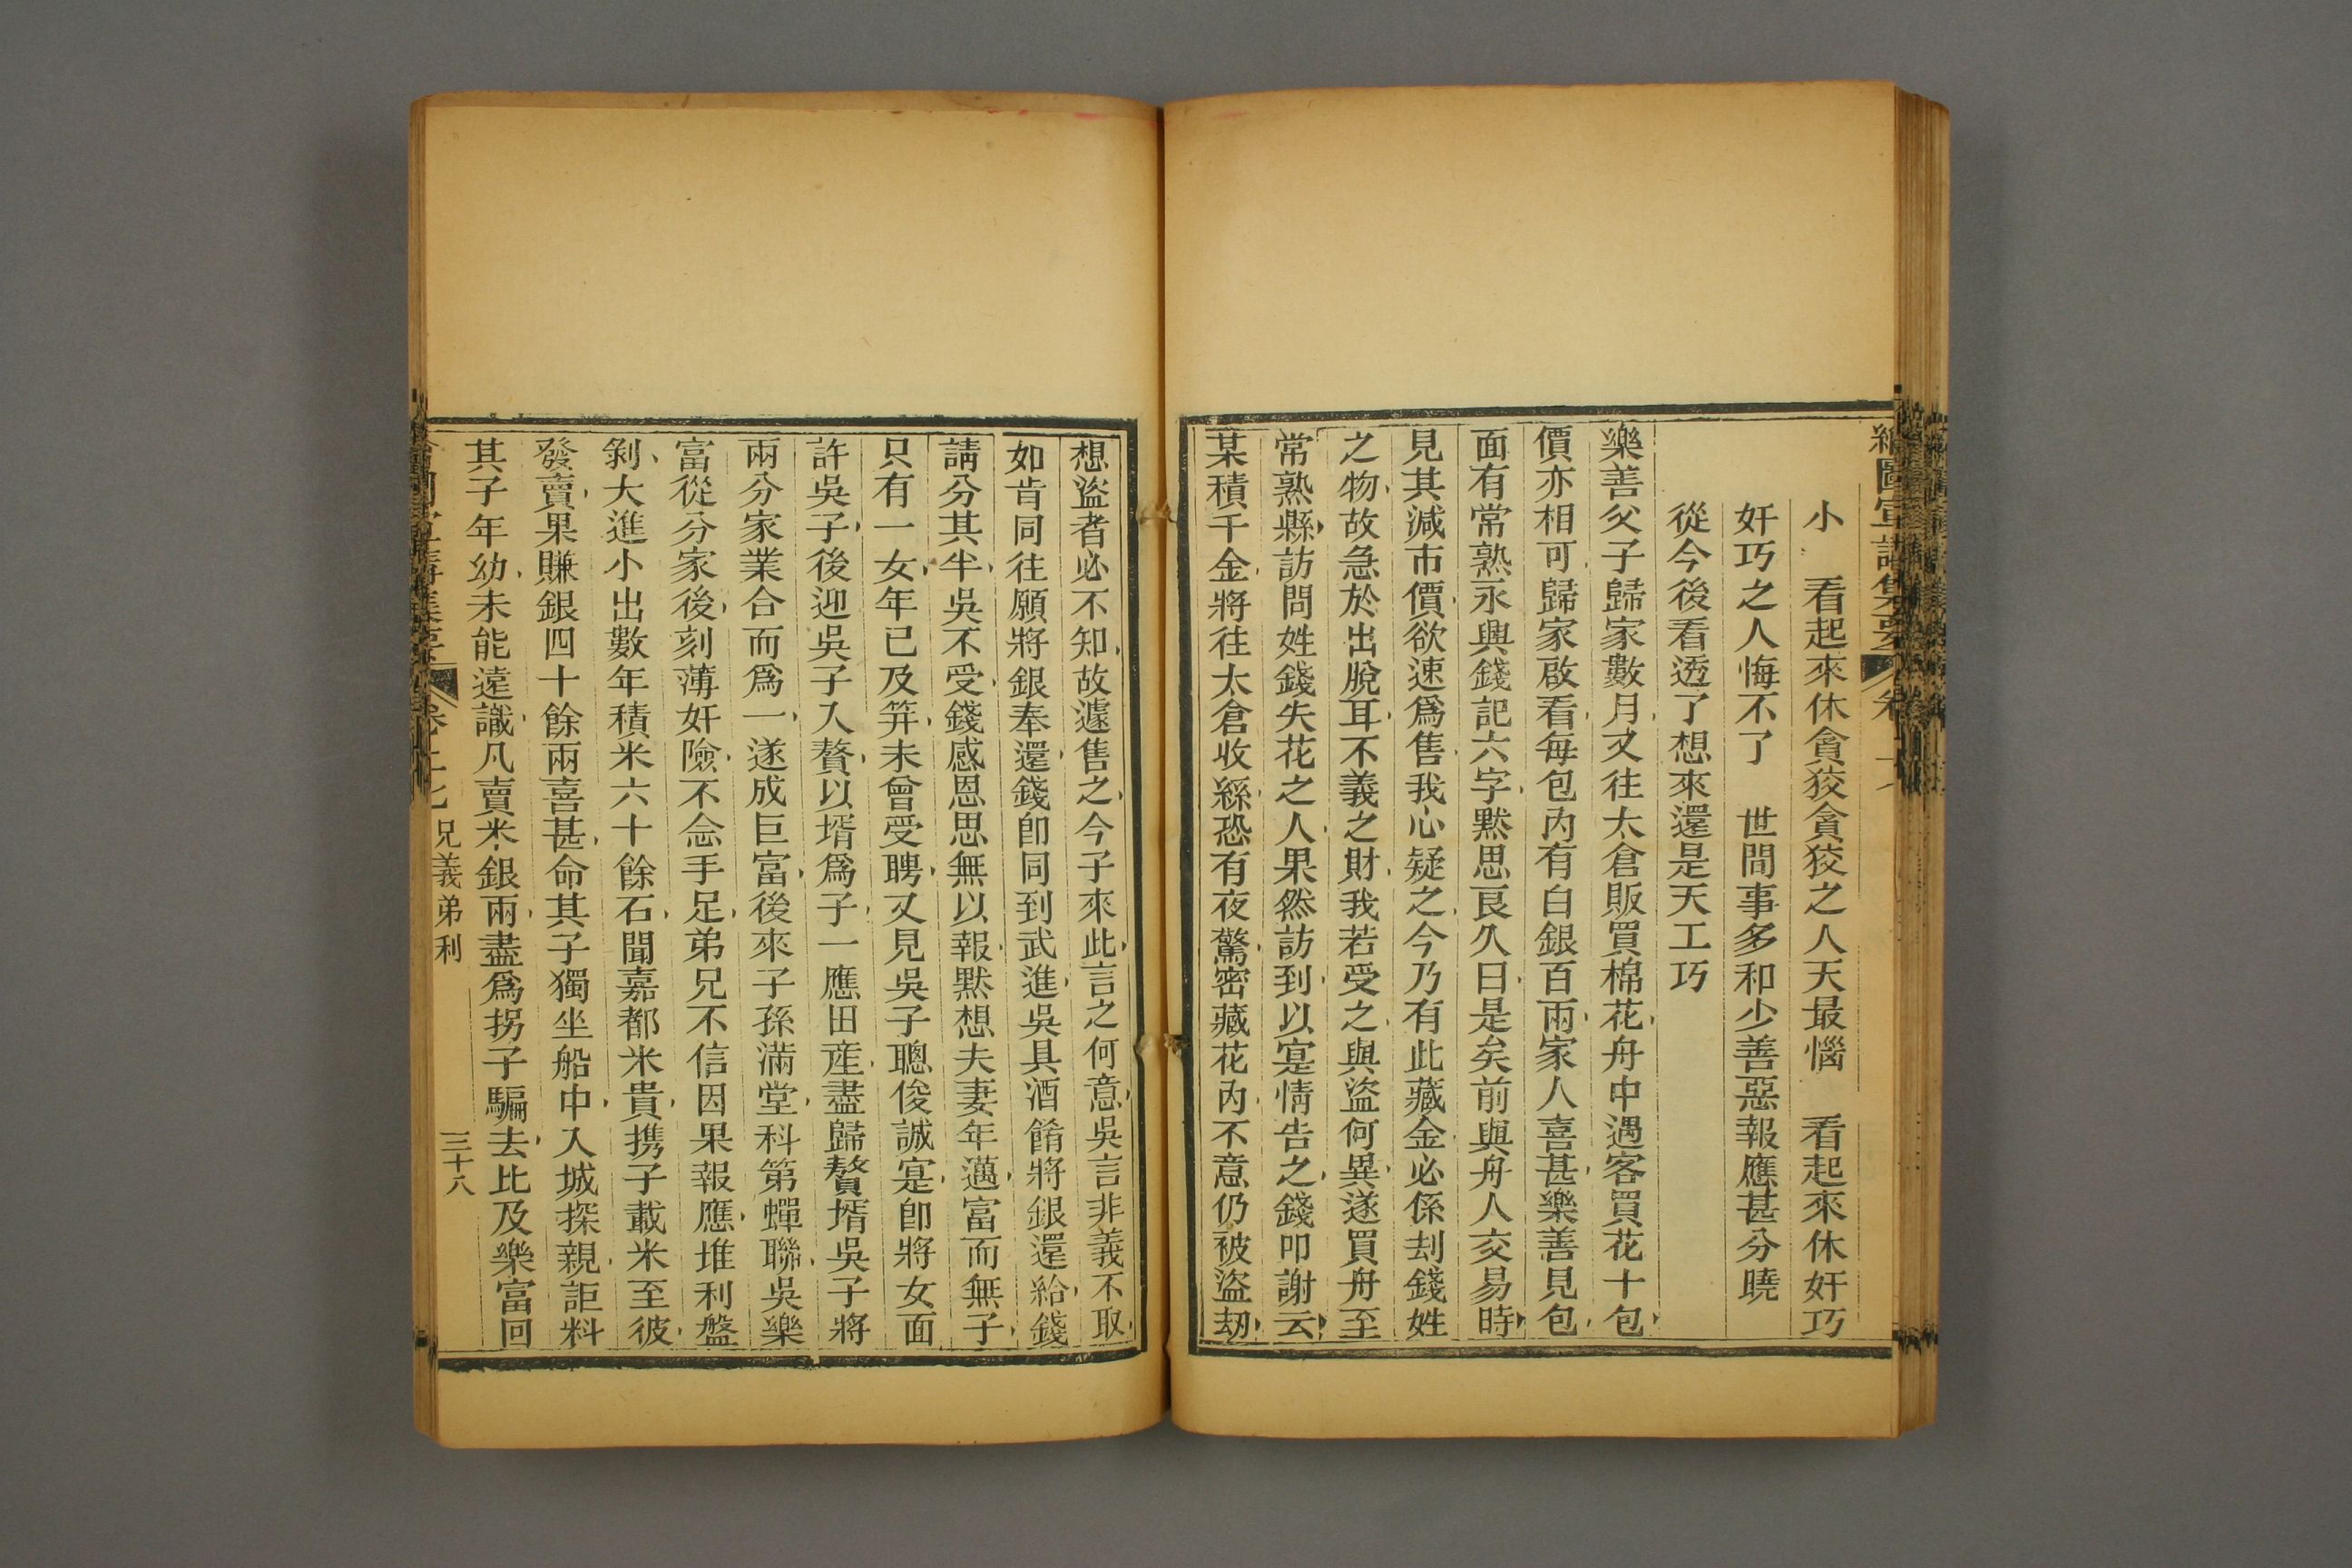 繪圖宣講集要 卷十
小 看起來休貪狡貪狡之人天最惱 看起來休奸巧
奸巧之人悔不了 世間事多和少善惡報應甚分曉
從今後看透了想來還是天工巧
樂善父子歸家數月又往太倉販買棉花舟中遇客買花十包
價亦相可歸家啟看每包內有白銀百兩家人喜甚樂善見包
面有常熟永興錢記六字默思良久曰是矣前與舟人交易時
見其減市價欲速爲售我心疑之今乃有此藏金必係刦錢姓
之物故急於出脫耳不義之財我若受之與盜何異遂買舟至
常熟縣訪問姓錢失花之人果然訪到以寔情告之錢叩謝云
某積千金將往太倉收絲恐有夜驚密藏花內不意仍被盜刼
想盜者必不知故遽售之今子來此言之何意吳言非義不取
如肯同往願將銀奉還錢卽同到武進吳具酒餚將銀還給錢
請分其半吳不受錢感恩思無以報默想夫妻年邁富而無子
只有一女年已及笄未曾受聘又見吳子聰俊誠寔卽將女面
許吳子後迎吳子入贅以壻爲子一應田產盡歸贅壻吳子將
兩分家業合而爲一遂成巨富後來子孫滿堂科第蟬聯吳樂
富從分家後刻薄奸險不念手足弟兄不信因果報應堆利盤
剝大進小出數年積米六十餘石聞嘉都米貴携子載米至彼
發賣果賺銀四十餘兩喜甚命其子獨坐船中入城探親詎料
其子年幼未能遠識凡賣米銀兩盡爲拐子騙去比及樂富回
兄義弟利 三十八